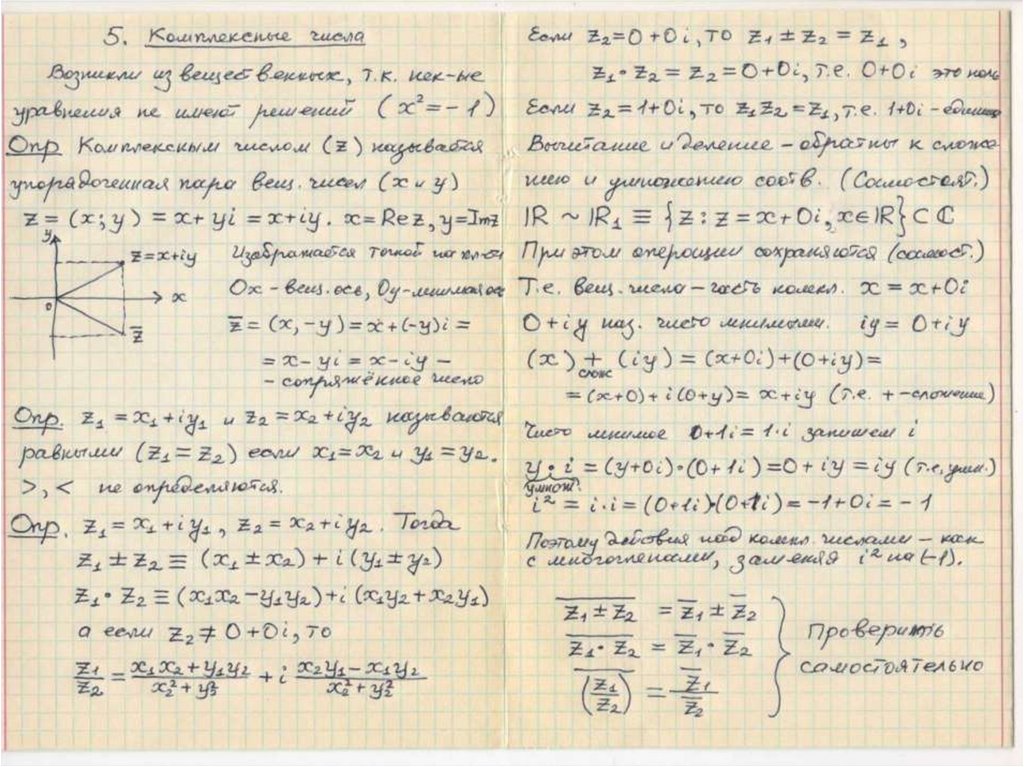 5. Комплексные числа
Возникли из вещественных, т.к. нек-ые
уравнения не имеют решений (x² = -1)
Опр Комплексным числом (z) называется
упорядоченная пара вещ. чисел (x и y)
z = (x; y) = x + yi = x + iy. x = Re z, y = Im z
y
z = x + iy
0
x
z̅
Изображается точкой на пл-ти
Ox - вещ. ось, Oy - мнимая ось
z̅ = (x, -y) = x + (-y)i =
= x - yi = x - iy -
- сопряжённое число
Опр. z₁ = x₁ + iy₁ и z₂ = x₂ + iy₂ называются
равными (z₁ = z₂) если x₁ = x₂ и y₁ = y₂.
>, < не определяются.
Опр. z₁ = x₁ + iy₁, z₂ = x₂ + iy₂. Тогда
z₁ ± z₂ ≡ (x₁ ± x₂) + i(y₁ ± y₂)
z₁ · z₂ ≡ (x₁x₂ - y₁y₂) + i(x₁y₂ + x₂y₁)
а если z₂ ≠ 0 + 0i, то
z₁/z₂ = (x₁x₂ + y₁y₂)/(x₂² + y₂²) + i (x₂y₁ - x₁y₂)/(x₂² + y₂²)
Если z₂ = 0 + 0i, то z₁ ± z₂ = z₁,
z₁ · z₂ = z₂ = 0 + 0i, т.е. 0 + 0i это ноль
Если z₂ = 1 + 0i, то z₁z₂ = z₁, т.е. 1 + 0i - единица
Вычитание и деление - обратны к сложе
нию и умножению соотв. (Самостоят.)
ℝ ~ ℝ₁ ≡ {z : z = x + 0i, x ∈ ℝ} ⊂ ℂ
При этом операции сохраняются (самост.)
Т.е. вещ. числа - часть компл. x = x + 0i
0 + iy наз. чисто мнимыми. iy = 0 + iy
(x) + (iy) = (x + 0i) + (0 + iy) =
слож
= (x + 0) + i(0 + y) = x + iy (т.е. + - сложение)
Чисто мнимое 0 + 1i = 1·i запишем i
y · i = (y + 0i)·(0 + 1i) = 0 + iy = iy (т.е. умн.)
умнож.
i² = i·i = (0 + 1i)·(0 + 1i) = -1 + 0i = -1
Поэтому действия над компл. числами - как
с многочленами, заменяя i² на (-1).
z̅₁̅ ̅±̅ ̅z̅₂̅ = z̅₁ ± z̅₂
z̅₁̅ ̅·̅ ̅z̅₂̅ = z̅₁ · z̅₂
(z₁/z₂)̅ = z̅₁/z̅₂
Проверить
самостоятельно